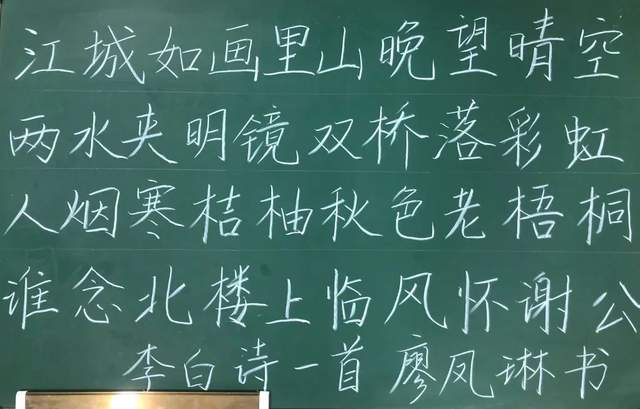 江城如画里山晚望晴空
两水夹明镜双桥落彩虹
人烟寒桔柚秋色老梧桐
谁念北楼上临风怀谢公
李白诗一首廖凤琳书